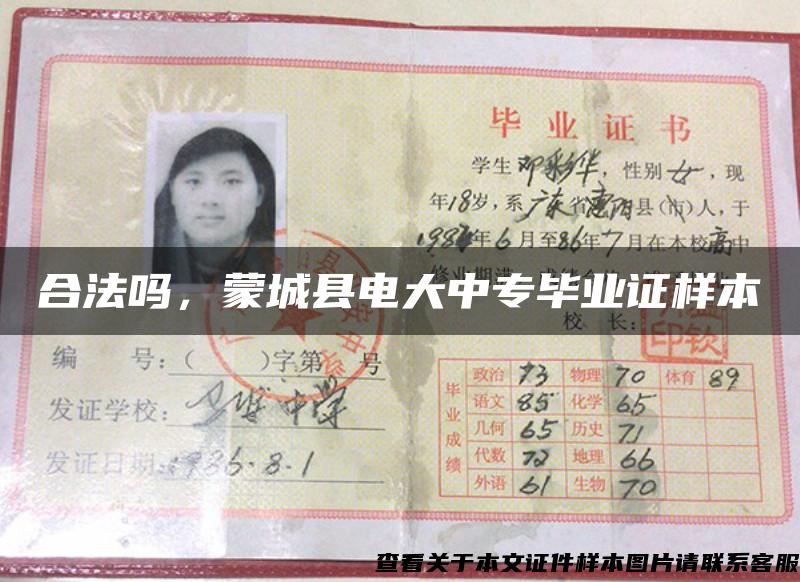 毕业证书
学生邓彩华，性别女，现
年18岁，系广东省惠阳县(市)人，于
年6月至86年7月在本校高中
合法吗，蒙城县电大中专毕业证样本
校 长：
编 号：( )字第 号
发证学校：
发证日期：1986.8.1
毕业成绩
政治 73 物理 70 体育 89
语文 85 化学 65
几何 65 历史 71
代数 72 地理 66
外语 61 生物 70
查看关于本文证件样本图片请联系客服